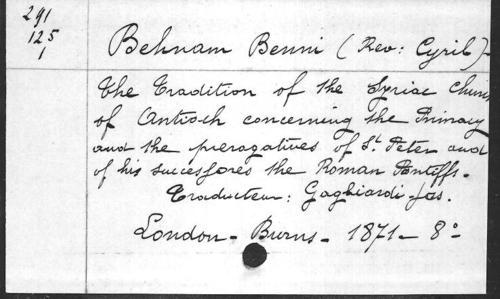 291
125
1
Behnam Benni (Rev: Cyril)-
the Tradition of the Syriac Church
of Antioch concerning the Primacy
and the prerogatives of St Peter and
of his successores the Roman Pontiffs.
Traducteur: Gagliardi Jos.
London - Burns - 1871 - 8°